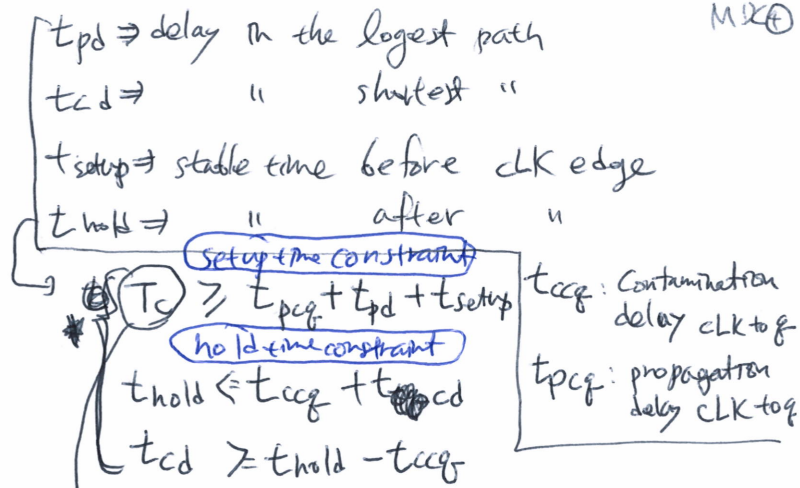 tpd ⇒ delay in the logest path
tcd ⇒ " shortest "
tsetup ⇒ stable time before CLK edge
thold ⇒ " after "
setup time constraint
Tc ≥ tpcq + tpd + tsetup
hold time constraint
thold ≤ tccq + tcd
tcd ≥ thold - tccq
tccq : Contamination
delay CLK to q
tpcq : propagation
delay CLK to q